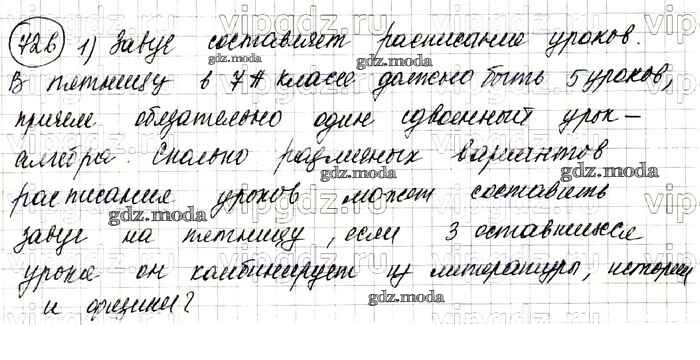 726 1) Завуч составляет расписание уроков.
В пятницу в 7А классе должно быть 5 уроков,
причем обязательно один сдвоенный урок -
алгебра. Сколько различных вариантов
расписания уроков может составить
завуч на пятницу, если 3 оставшиеся
урока он комбинирует из литературы, истории
и физики?